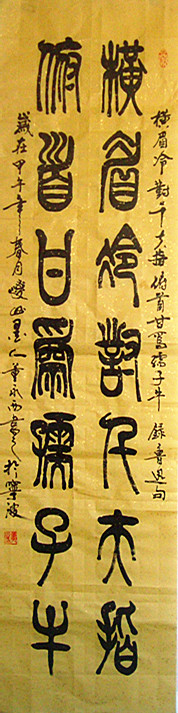 橫眉冷對千夫指俯首甘爲孺子牛 錄魯迅句
橫眉冷對千夫指
俯首甘爲孺子牛
歲在甲午年之春月 墨人董 書之於寧波